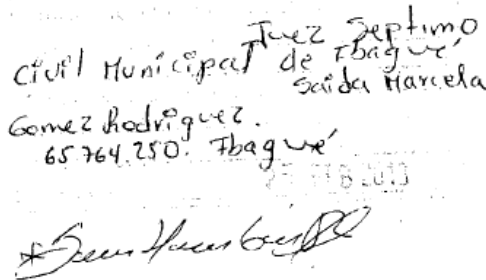 Juez Septimo
Civil Municipal de Ibagué
Saida Marcela
Gomez Rodriguez.
65.764.250. Ibagué
FEB 2013